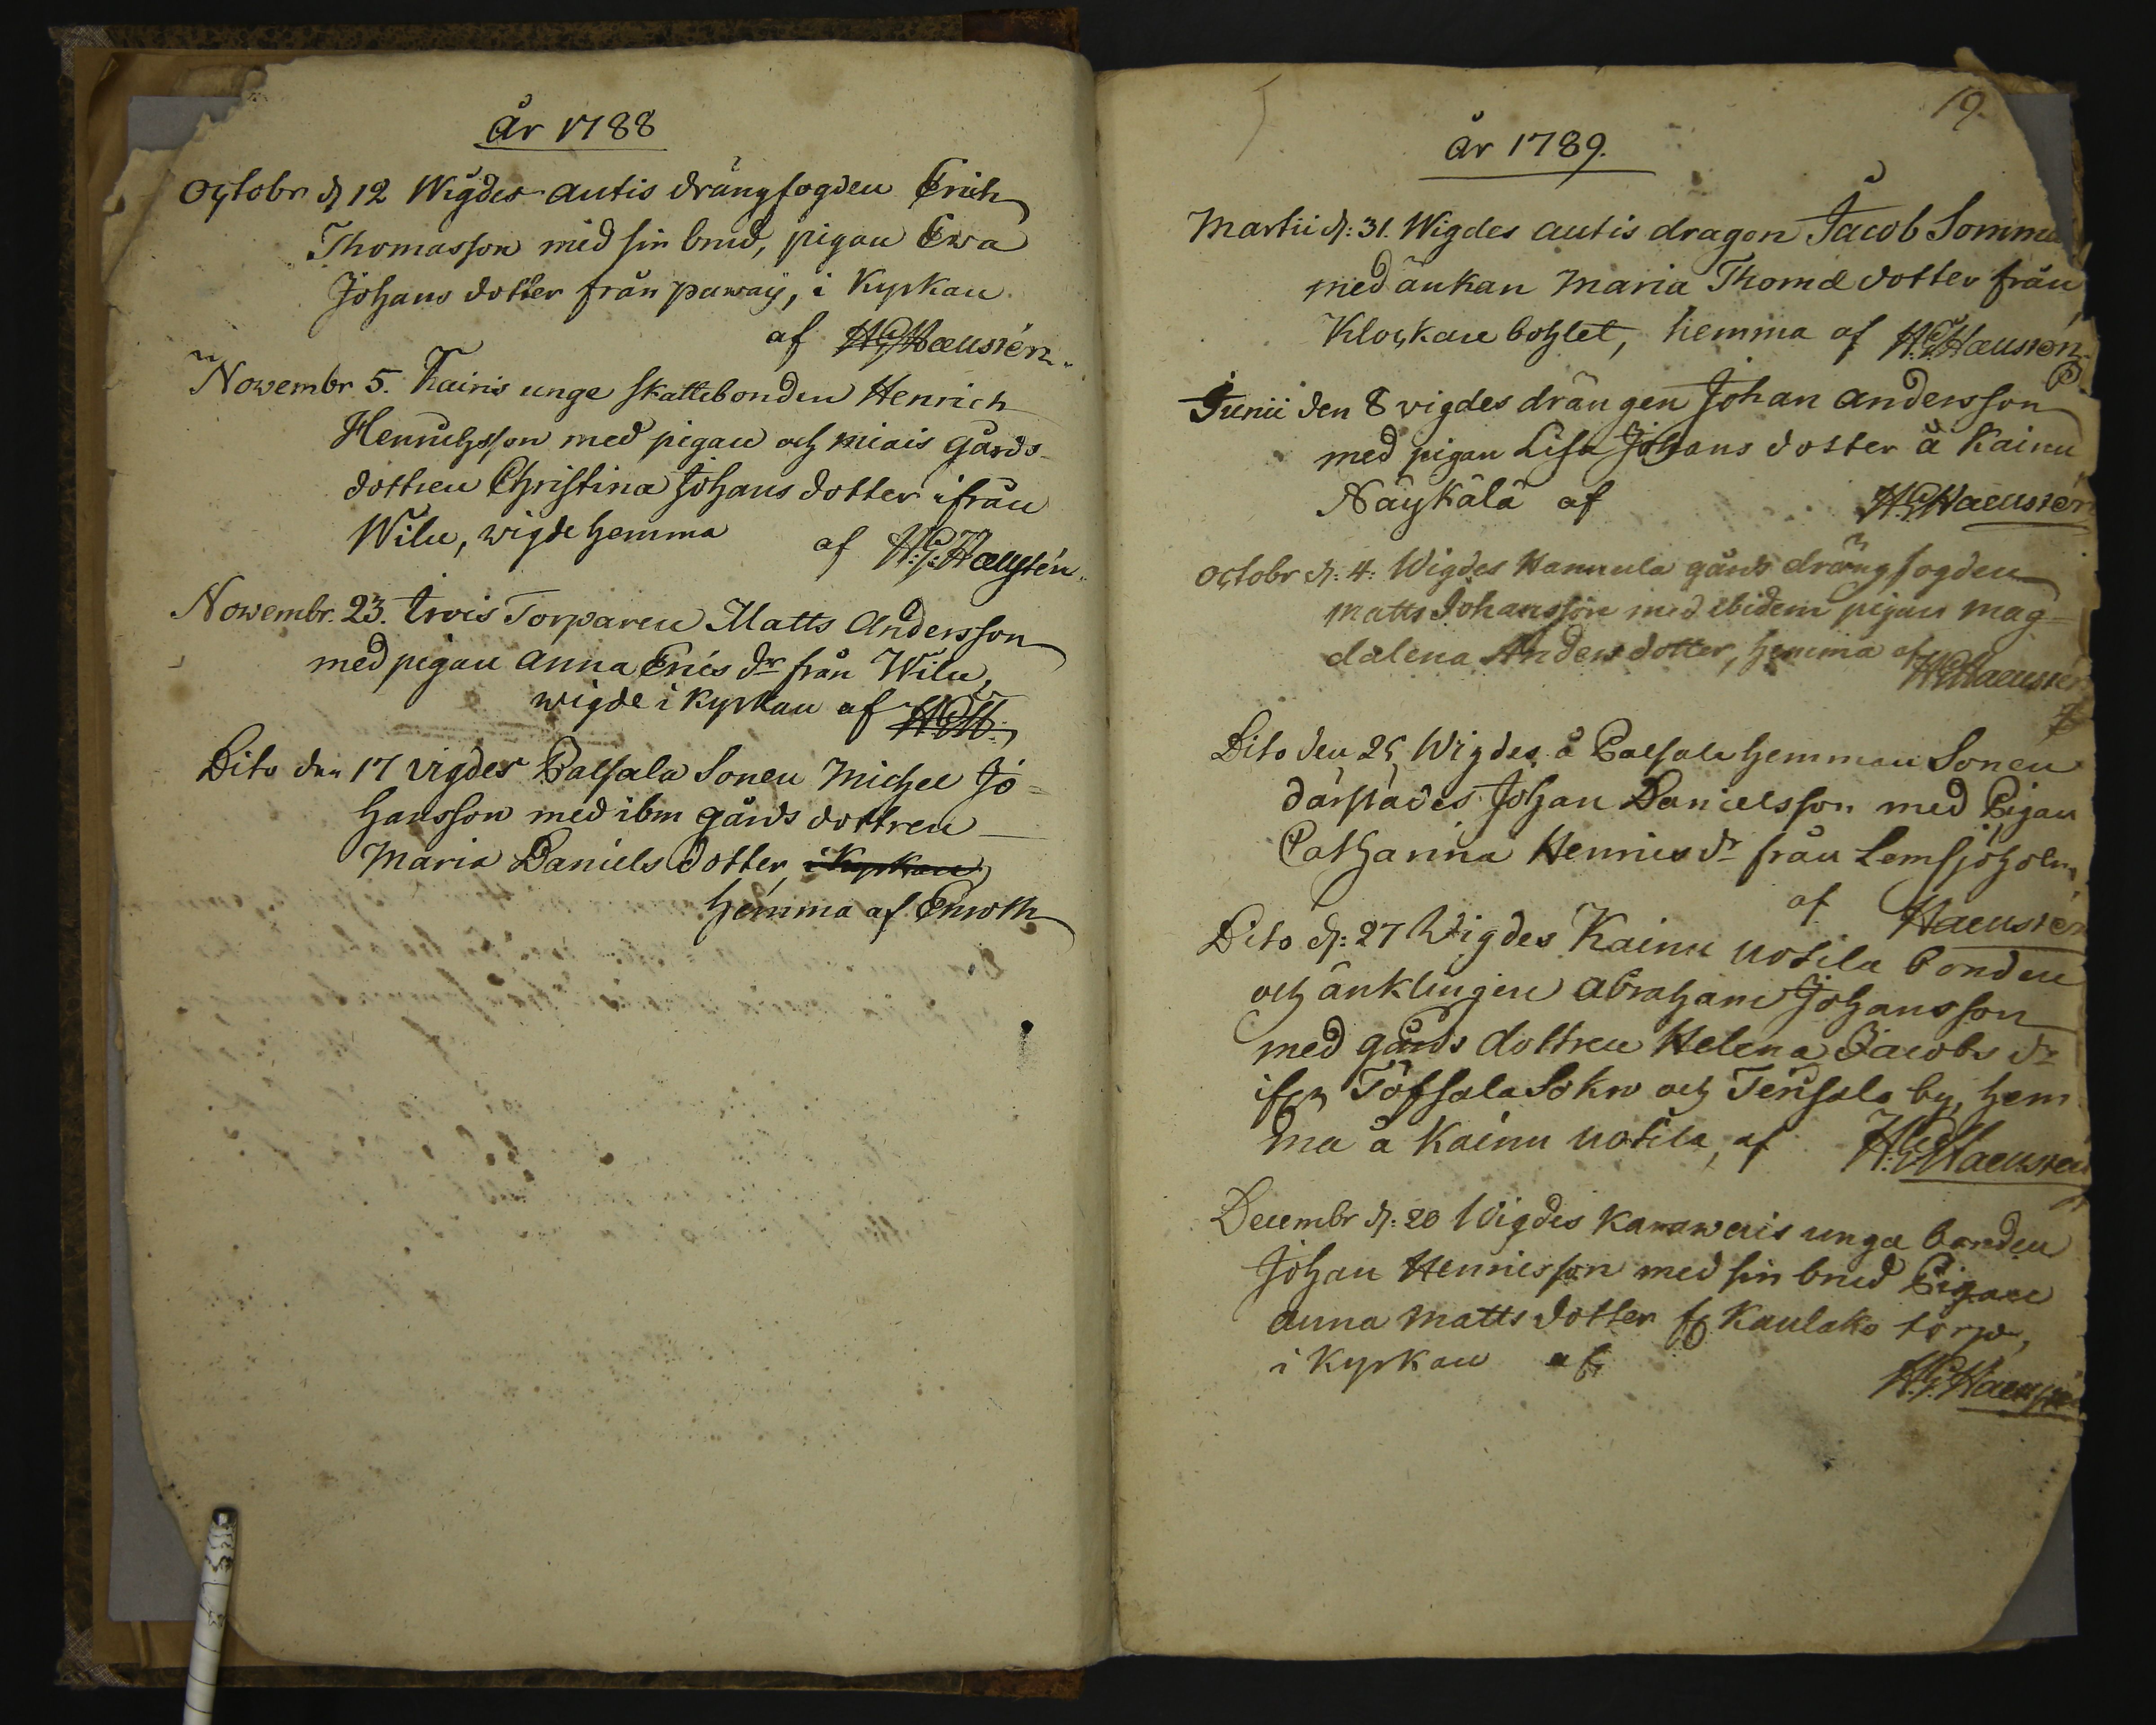 År 1788
Octobr d 12 Wigdes autis drängfogden Erich
Thomasson med sin brud, pigan Ewa
Johans dotter från paway, i Kyrkan
af H:G:Haeusten.
Novembr 5. Kainis unge skattebonden Henrich
Henrichsson med pigan och miais gårds-
dottren Christina Johans dotter ifrån
Wilu, wigde hemma af H:G:Haeusten.
Novembr. 23. trois Torparen Matts Andersson
med pigan Anna Erics dr från Wilu,
wigde i Kyrkan af H:G:H:
Dito den 17 vigdes Palsala Sonen Michel Jo=
hansson med ibm gårds dottren
Maria Daniels dotter, i Kyrkan
hemma af Enwth
19.
år 1789.
Martii d: 31. Wigdes autis dragon Jacob Somm
med änkan Maria Thomæ dotter från
Klockare bohlet, hemma af H:G:Haeusten
Junii den 8 vigdes drängen Johan andersson
med pigan Lisa Johans dotter å Kainu
Näykälä af H:G:Haeusten
octobr d: 4: Wigdes Hannula gårds drängfogden
Matts Johansson med ibidem pigan Mag=
dalena Anders dotter, hemma af H:G:Haeusten
Dito den 25 Wigdes å Palsala hemman Sonen
därstädes Johan Danielsson med Pigan
Catharina Henrics dr från Lemsjöholm,
af Haeusten
Dito d: 27 Wigdes Kainu Uotila bonden
och änklingen Abraham Johansson
med gårds dottren Helena Jacobs dr
ifrn Töfsala Sokn och Tersala by, hem
ma å Kainu Uotila, af H:G:Haeusten
Decembr d: 20 Wigdes Karawais unga bonden
Johan Henricsson med sin brud Pigan
Anna Matts dotter fr Kaulaks torp,
i Kyrkan af H:G:Haeusten